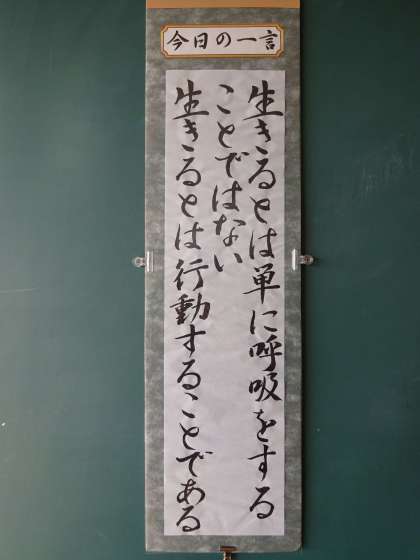 今日の一言
生きるとは単に呼吸をする
ことではない
生きるとは行動することである